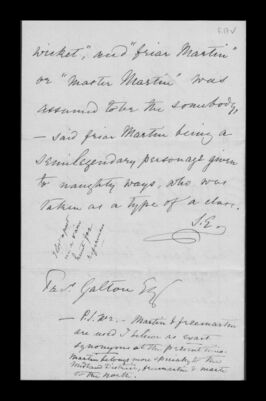 wicket", and "friar Martin"
or "Master Martin" was
assumed to be the somebody,
— said friar Martin being a
semilegendary personage given
to naughty ways, who was
taken as a type of a class.
J.E.
Fra.s Galton Esq
— P.S. — Martin & freemartin
are used I believe as exact
synonyms at the present time.
Martin belongs more specially to the
Midland Districts, freemartin &
to the north.